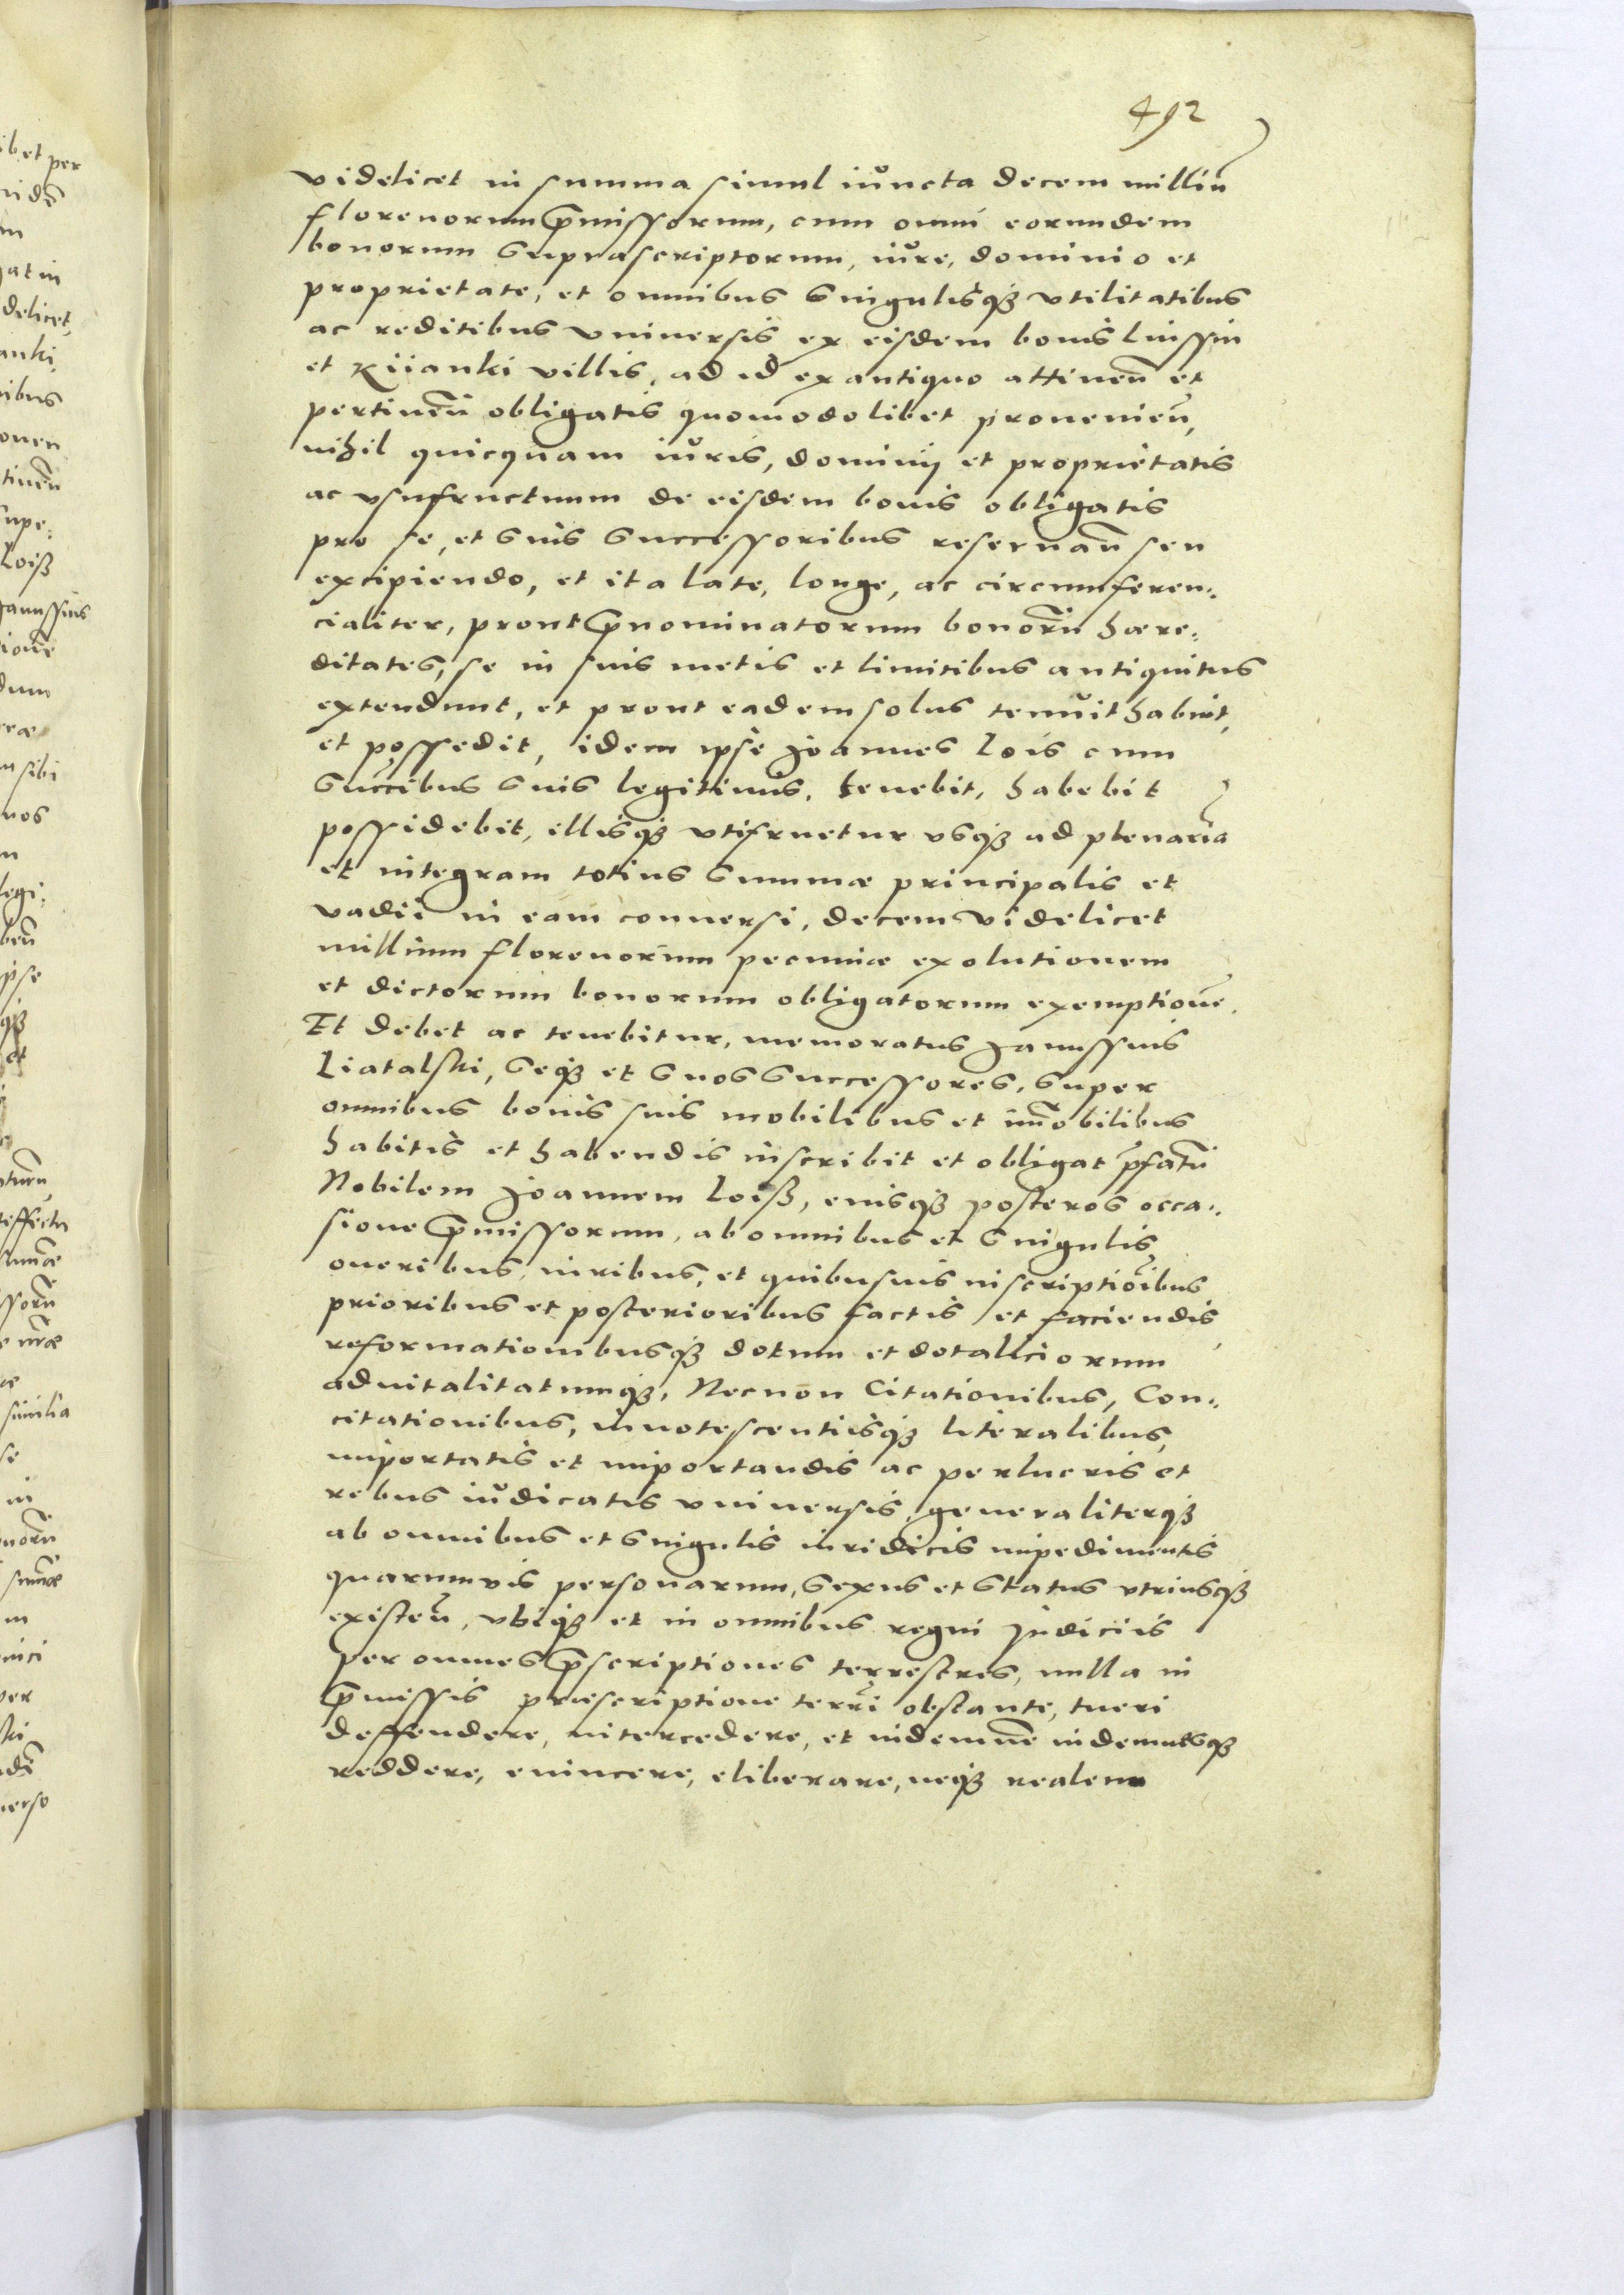 492
videlicet in summa simul iuncta decem milliū
florenorum p̄missorum, cum omni eorumdem
bonorum supra scriptorum, iure, dominio et
proprietate, et omnibus singulisq3 vtilitatibus
ac reditibus vniuersis ex eisdem bonis Luissin
et Kiianki villis, ad id ex antiquo attineñ et
pertineñ obligatis quomodolibet prouenieñ,
nihil quicquam iuris, dominij et proprietatis
ac vsufructuum de eisdem bonis obligatis
pro se, et suis successoribus reseruañ seu
excipiendo, et ita late, longe, ac circumferen:
cialiter, prout p̄nominatorum bonorū hære:
ditates, se in suis metis et limitibus antiquitus
extendunt, et prout eadem solus tenuit habuit,
et possedit, idem ipse Joannes Lois cum
succibus suis legitimis, tenebit, habebit
possidebit, illisq3 vtifruetur vsq3 ad plenariā
et integram totius summæ principalis et
vadii in eam conuersi, decem videlicet
millium florenorum pecuniæ exolutionem
et dictorum bonorum obligatorum exemptionē.
Et debet ac tenebitur, memoratus Janussius
Liatalski, seq3 et suos successores, super
omnibus bonis suis mobilibus et im̄obilibus
habitis et habendis inscribit et obligat p̄fatū
Nobilem Joannem Loiß, eiusq3 posteros occa:
sione p̄missorum, ab omnibus et singulis
oneribus, iuribus, et quibusuis inscriptioībus
prioribus et posterioribus factis et faciendis
reformationibusq3 dotum et dotaliciorum
aduitalitatumq3, Necnon Citationibus, Con:
citationibus, innotescentiisq3 literalibus,
importatis et importandis ac perlucris et
rebus iudicatis vniuersis, generaliterq3
ab omnibus et singulis iuridicis impedimentis
quarumuis personarum, sexus et status vtriusq3
existeñ, vbiq3 et in omnibus regni Judiciis
per omnes p̄scriptiones terrestres, nulla in
p̄missis præscriptione terrī obstante, tueri
deffendere, intercedere, et indemnē indemnesq3
reddere, euincere, eliberare, neq3 realem